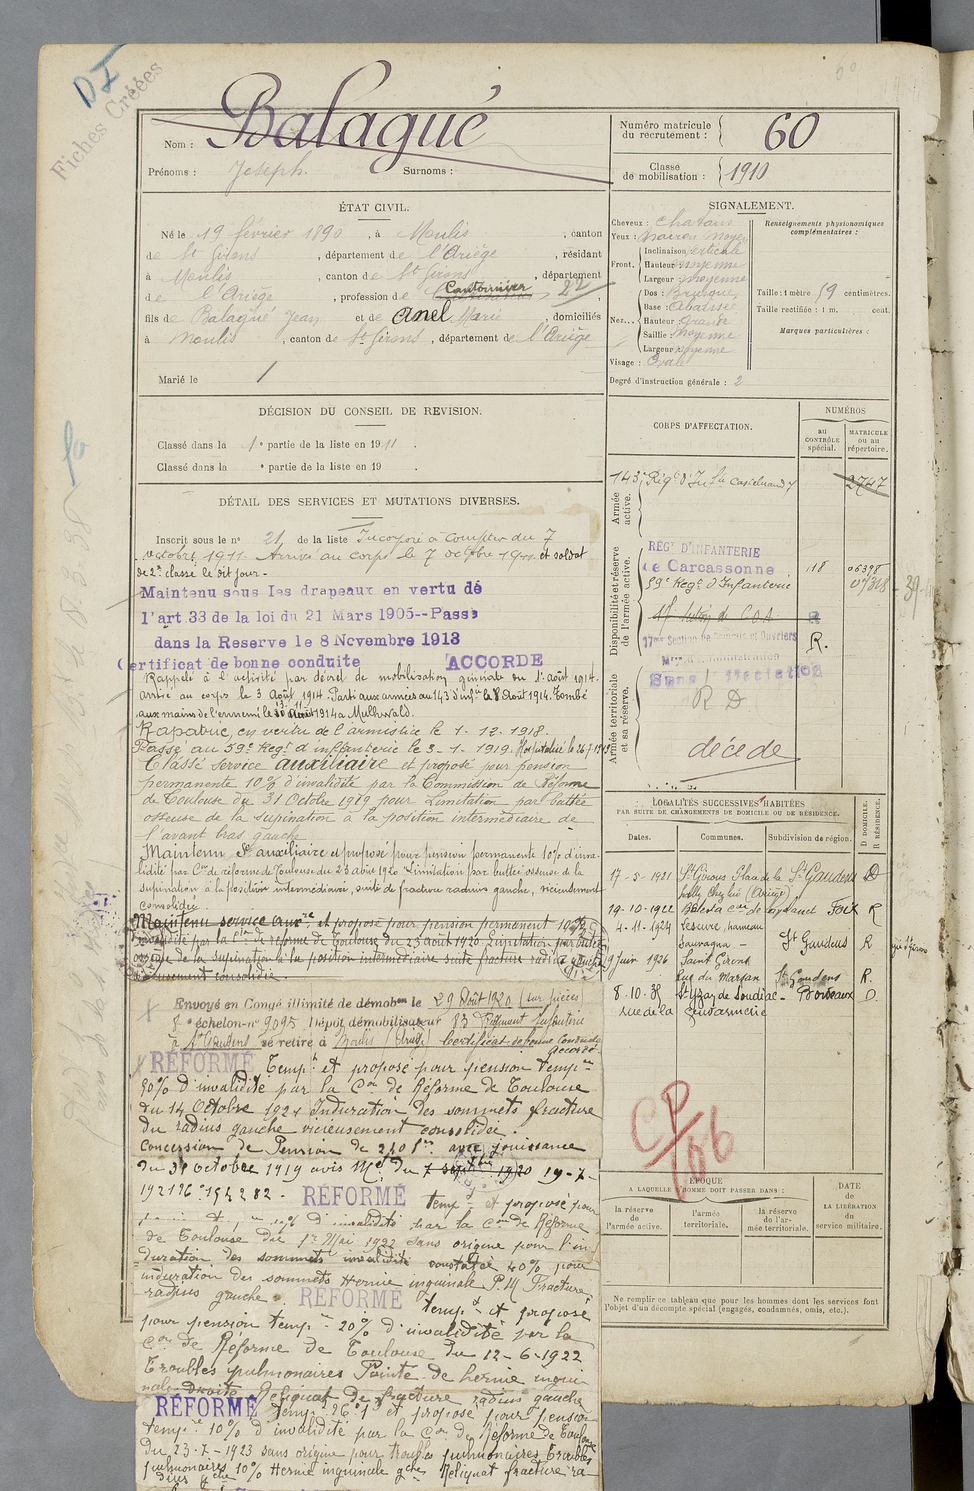 DI
Fiches Créées
Nom : Balagué
Prénoms : Joseph. Surnoms :
Numéro matricule du recrutement : 60
Classe de mobilisation : 1910
ÉTAT CIVIL.
Né le 19 février 1890, à Moulis, canton
de St Girons, département de l'Ariège, résidant
à Moulis, canton de St Girons, département
de l'Ariège, profession de Cantonnier 22,
fils de Balagué Jean et de Anel Marie, domiciliés
à Moulis, canton de St Girons, département de l'Ariège
Marié le /
SIGNALEMENT.
Cheveux : chatains
Yeux : marron moyen
Front. Inclinaison verticale
Hauteur moyenne
Largeur moyenne
Nez... Dos : Busqué
Base : Abaissée
Hauteur Grande
Saillie : Moyenne
Largeur Moyenne
Visage : Ovale
Renseignements physionomiques complémentaires :
Taille : 1 mètre 59 centimètres.
Taille rectifiée : 1 m. cent.
Marques particulières :
Degré d'instruction générale : 2
DÉCISION DU CONSEIL DE REVISION.
Classé dans la 1e partie de la liste en 1911.
Classé dans la e partie de la liste en 19 .
DÉTAIL DES SERVICES ET MUTATIONS DIVERSES.
Inscrit sous le n° 21 de la liste Incorporé à compter du 7
octobre 1911. Arrivé au corps le 7 octobre 1911 et soldat
de 2e classe le dit jour -
Maintenu sous les drapeaux en vertu de
l'art. 33 de la loi du 21 Mars 1905--Passé
dans la Reserve le 8 Novembre 1913
Certificat de bonne conduite ACCORDE
Rappelé à l'activité par décret de mobilisation générale du 1er août 1914.
arrivé au corps le 3 Août 1914. Parti aux armées au 143e d'infie le 8 Août 1914. Tombé
aux mains de l'ennemi le 1914 à Mulhwald.
Rapatrié, en vertu de l'armistice le 1-12-1918.
Passé au 59e Regt d'infanterie le 3-1-1919. Hospitalisé le 26.7.1919
Classé service auxiliaire et proposé pour pension
permanente 10% d'invalidité par la Commission de Réforme
de Toulouse du 31 Octobre 1919 pour Limitation par butée
osseuse de la supination à la position intermédiaire de
l'avant bras gauche
Maintenu Sce auxiliaire et proposé pour pension permanente 10% d'inva-
lidité par Con de réforme de Toulouse du 23 août 1920 Limitation par butée osseuse de la
supination à la position intermédiaire, suite de fracture radius gauche, vicieusement
consolidée
Maintenu service auxre et proposé pour pension permanent 10%
d'invalidité par la Con de réforme de Toulouse du 23 août 1920 Limitation par butée
osseuse de la supination à la position intermédiaire suite fracture radius gauche
vicieusement consolidée
Envoyé en Congé illimité de démobon le 29 Août 1920 (sur pièces)
échelon n° 9095. Dépôt démobilisateur 83 Régiment infanterie
à St Gaudens, se retire à Moulis (Ariège) Certificat de bonne conduite
accordé
RÉFORMÉ Tempre et proposé pour pension tempre
% d'invalidité par la Con de Réforme de Toulouse
du 14 Octobre 1921 Induration des sommets fracture
du radius gauche vicieusement consolidée.
Concession de Pension de 240 frs avec jouissance
du 31 octobre 1919 avis Mel du 7 Septbre 1920 19-7-
RÉFORMÉ tempre et proposé pour
% d'invalidité par la Con de Réforme
de Toulouse du 1er Mai 1922 sans origine pour l'in-
duration des sommets invalidité constatée 40% pour
induration des sommets Hernie inguinale P.M Fracture
radius gauche.
RÉFORMÉ tempre et proposé
pour pension tempre 20% d'invalidité par la
Con de Réforme de Toulouse du 12-6-1922
Troubles pulmonaires Pointe de hernie ingui-
nale droite Reliquat de fracture radius gauche
RÉFORMÉ temp et proposé pour pension
tempre 10% d'invalidité par la Con de Réforme de Toulouse
du 23-7-1923 sans origine pour troubles pulmonaires Troubles
pulmonaires 10% Hernie inguinale gche Reliquat fracture ra-
dius gche
CORPS D'AFFECTATION.
NUMÉROS
au CONTRÔLE spécial.
MATRICULE ou au répertoire.
Armée active.
143e Régt d'Infie Castelnaudary 2747
Disponibilité et réserve de l'armée active.
RÉGt D'INFANTERIE
de Carcassonne 118 06398
59e Regt d'Infanterie 07318
17e Section de C O A
17me Section de Commis et Ouvriers R.
Mres d'Administration
Sans affectation
Armée territoriale et sa réserve.
R D
décédé
LOCALITÉS SUCCESSIVES HABITÉES
PAR SUITE DE CHANGEMENTS DE DOMICILE OU DE RÉSIDENCE.
Dates. Communes. Subdivision de région. D DOMICILE. R RÉSIDENCE.
17-5-1921 St Girons St Gaudens D
(Ariège)
19-10-1922 Foix R
4-11-1924 Lescure, hameau
Sauvagna - St Gaudens R
9 Juin 1926 Saint Girons
Rue du Marsan St Gaudens R.
8-10-35 St Yzay de Soudiac - Bordeaux D
rue de la Gendarmerie
CP/66
ÉPOQUE
A LAQUELLE L'HOMME DOIT PASSER DANS :
la réserve de l'armée active.
l'armée territoriale.
la réserve de l'armée territoriale.
DATE de LA LIBÉRATION du service militaire.
Ne remplir ce tableau que pour les hommes dont les services font
l'objet d'un décompte spécial (engagés, condamnés, omis, etc.).